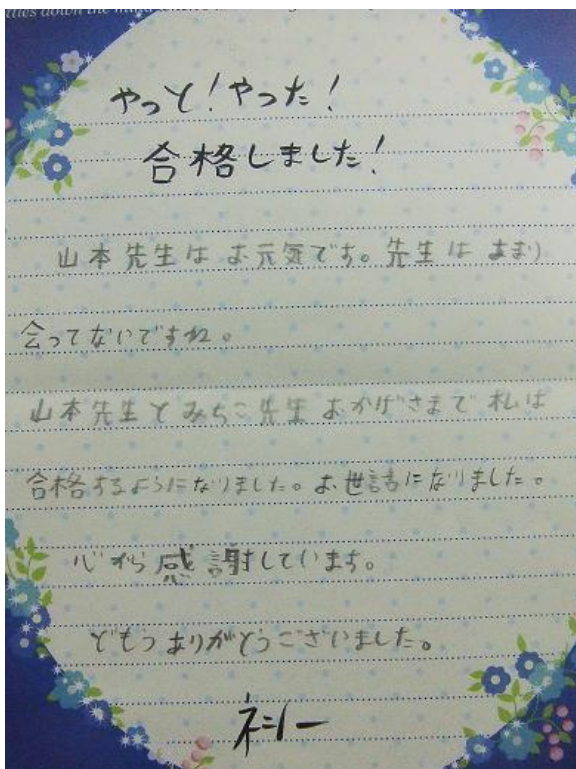 やっと！やった！
合格しました！
山本先生は お元気です。先生は あまり
会ってないですね。
山本先生と みちこ先生 おかげさまで 私は
合格するようになりました。お世話になりました。
心から 感謝しています。
どもうありがとうございました。
ネシー